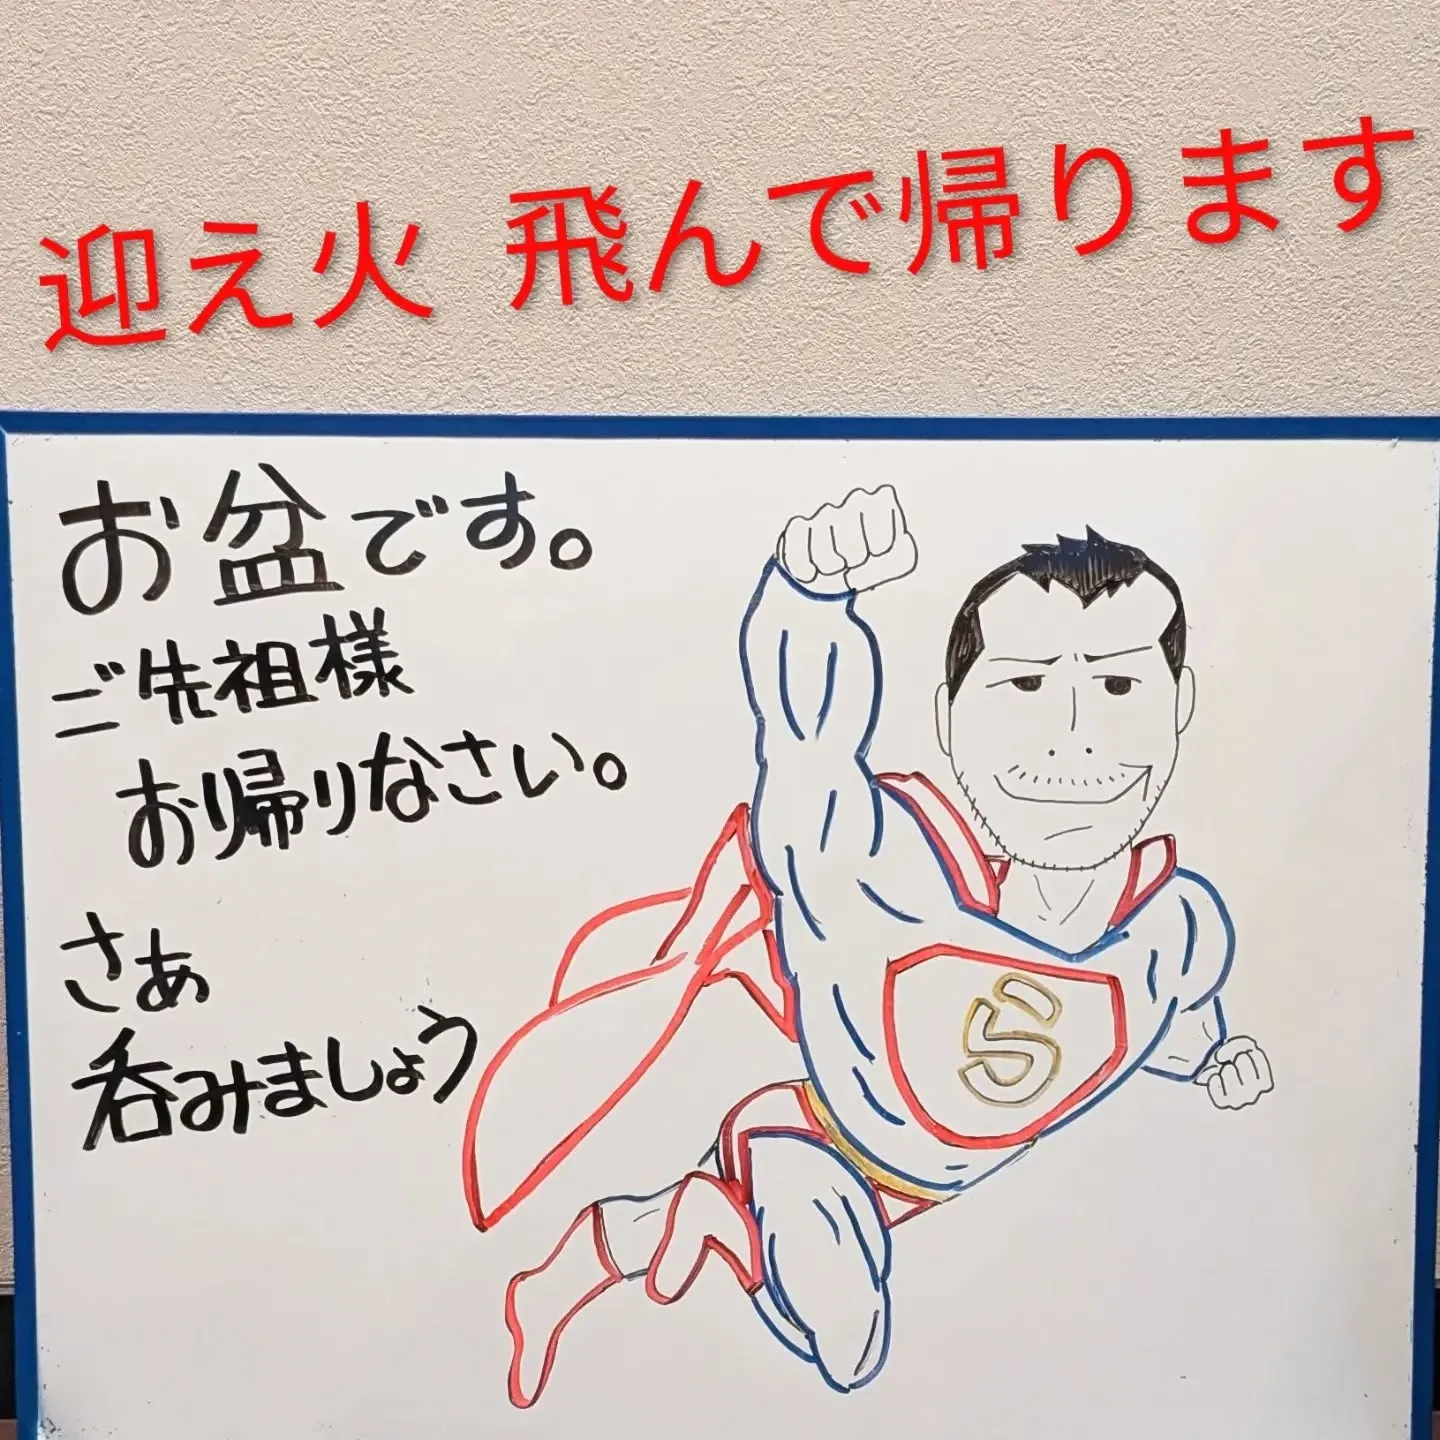 迎え火 飛んで帰ります
お盆です。
ご先祖様
お帰りなさい。
さあ
呑みましょう
ら